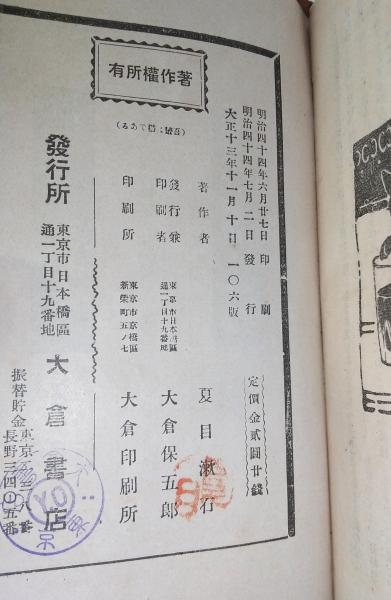 明治四十四年六月廿七日印刷
明治四十四年七月二日發行
大正十三年十一月十日一〇六版
定價金貳圓廿錢
著作者
夏目漱石
發行兼印刷者
東京市日本橋區
通一丁目十九番地
大倉保五郎
印刷所
東京市京橋區
新榮町五ノ七
大倉印刷所
著作權所有
發行所
東京市日本橋區
通一丁目十九番地
大倉書店
振替貯金